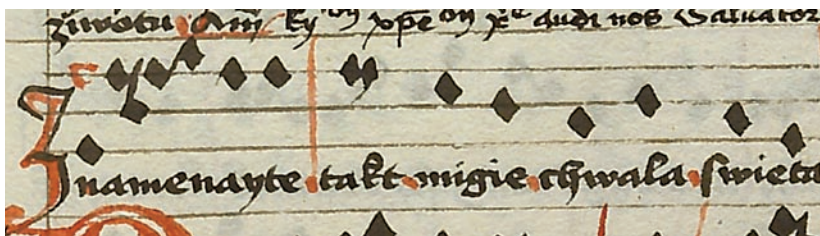 żiwotu Am̄ ky on xp̄e on x̄e audi nos Salvator
Znamenayte takt migie chwala swieta